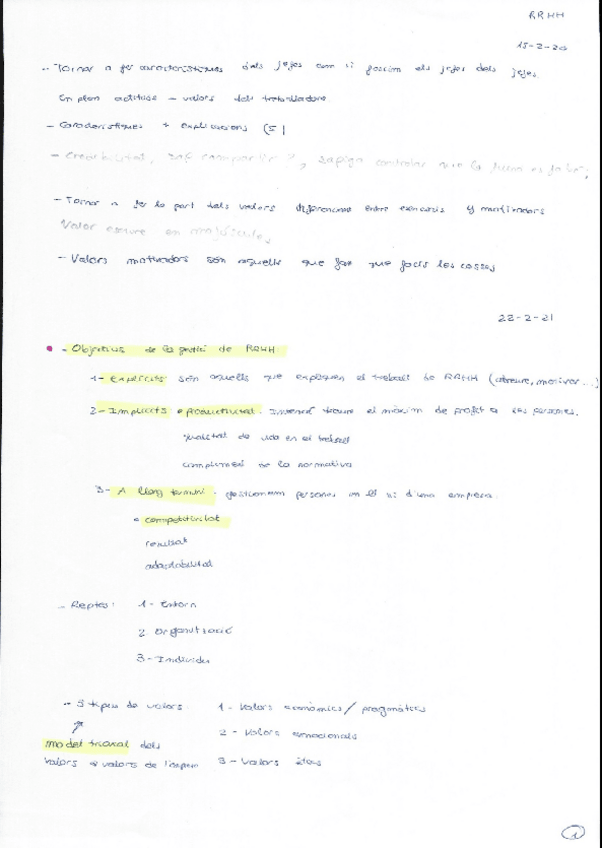 RRHH
15-2-20
- Tornar a fer característiques dels jefes com si fossim els jefes dels jefes.
En plan actitude - valors dels treballadors
- Característiques + explicacions (5)
- Credibilitat, sap compartir, sapiga controlar que la
- Tornar a fer la part dels valors diferencies entre y motivadors
Valor escriure en majúscules
- Valors motivadors són aquells que fan que facis les cosses
22-2-21
- Objectius de la gestió de RRHH.
1- Explícits són aquells que expliquen el treball de RRHH (atreure, motivar...)
2- Implícits productivitat. Intentar treure el màxim de profit a les persones.
qualitat de vida en el treball
compliment de la normativa
3- A llarg termini. gestionam persones en el si d'una empresa.
competitivitat
resultat
adaptabilitat
- Reptes: 1- Entorn
2 Organització
3- Individu
- 3 tipus de valors: 1- Valors econòmics / pragmàtics
model triaxal dels 2- Valors emocionals
valors valors de l'espai 3- Valors ètics
1